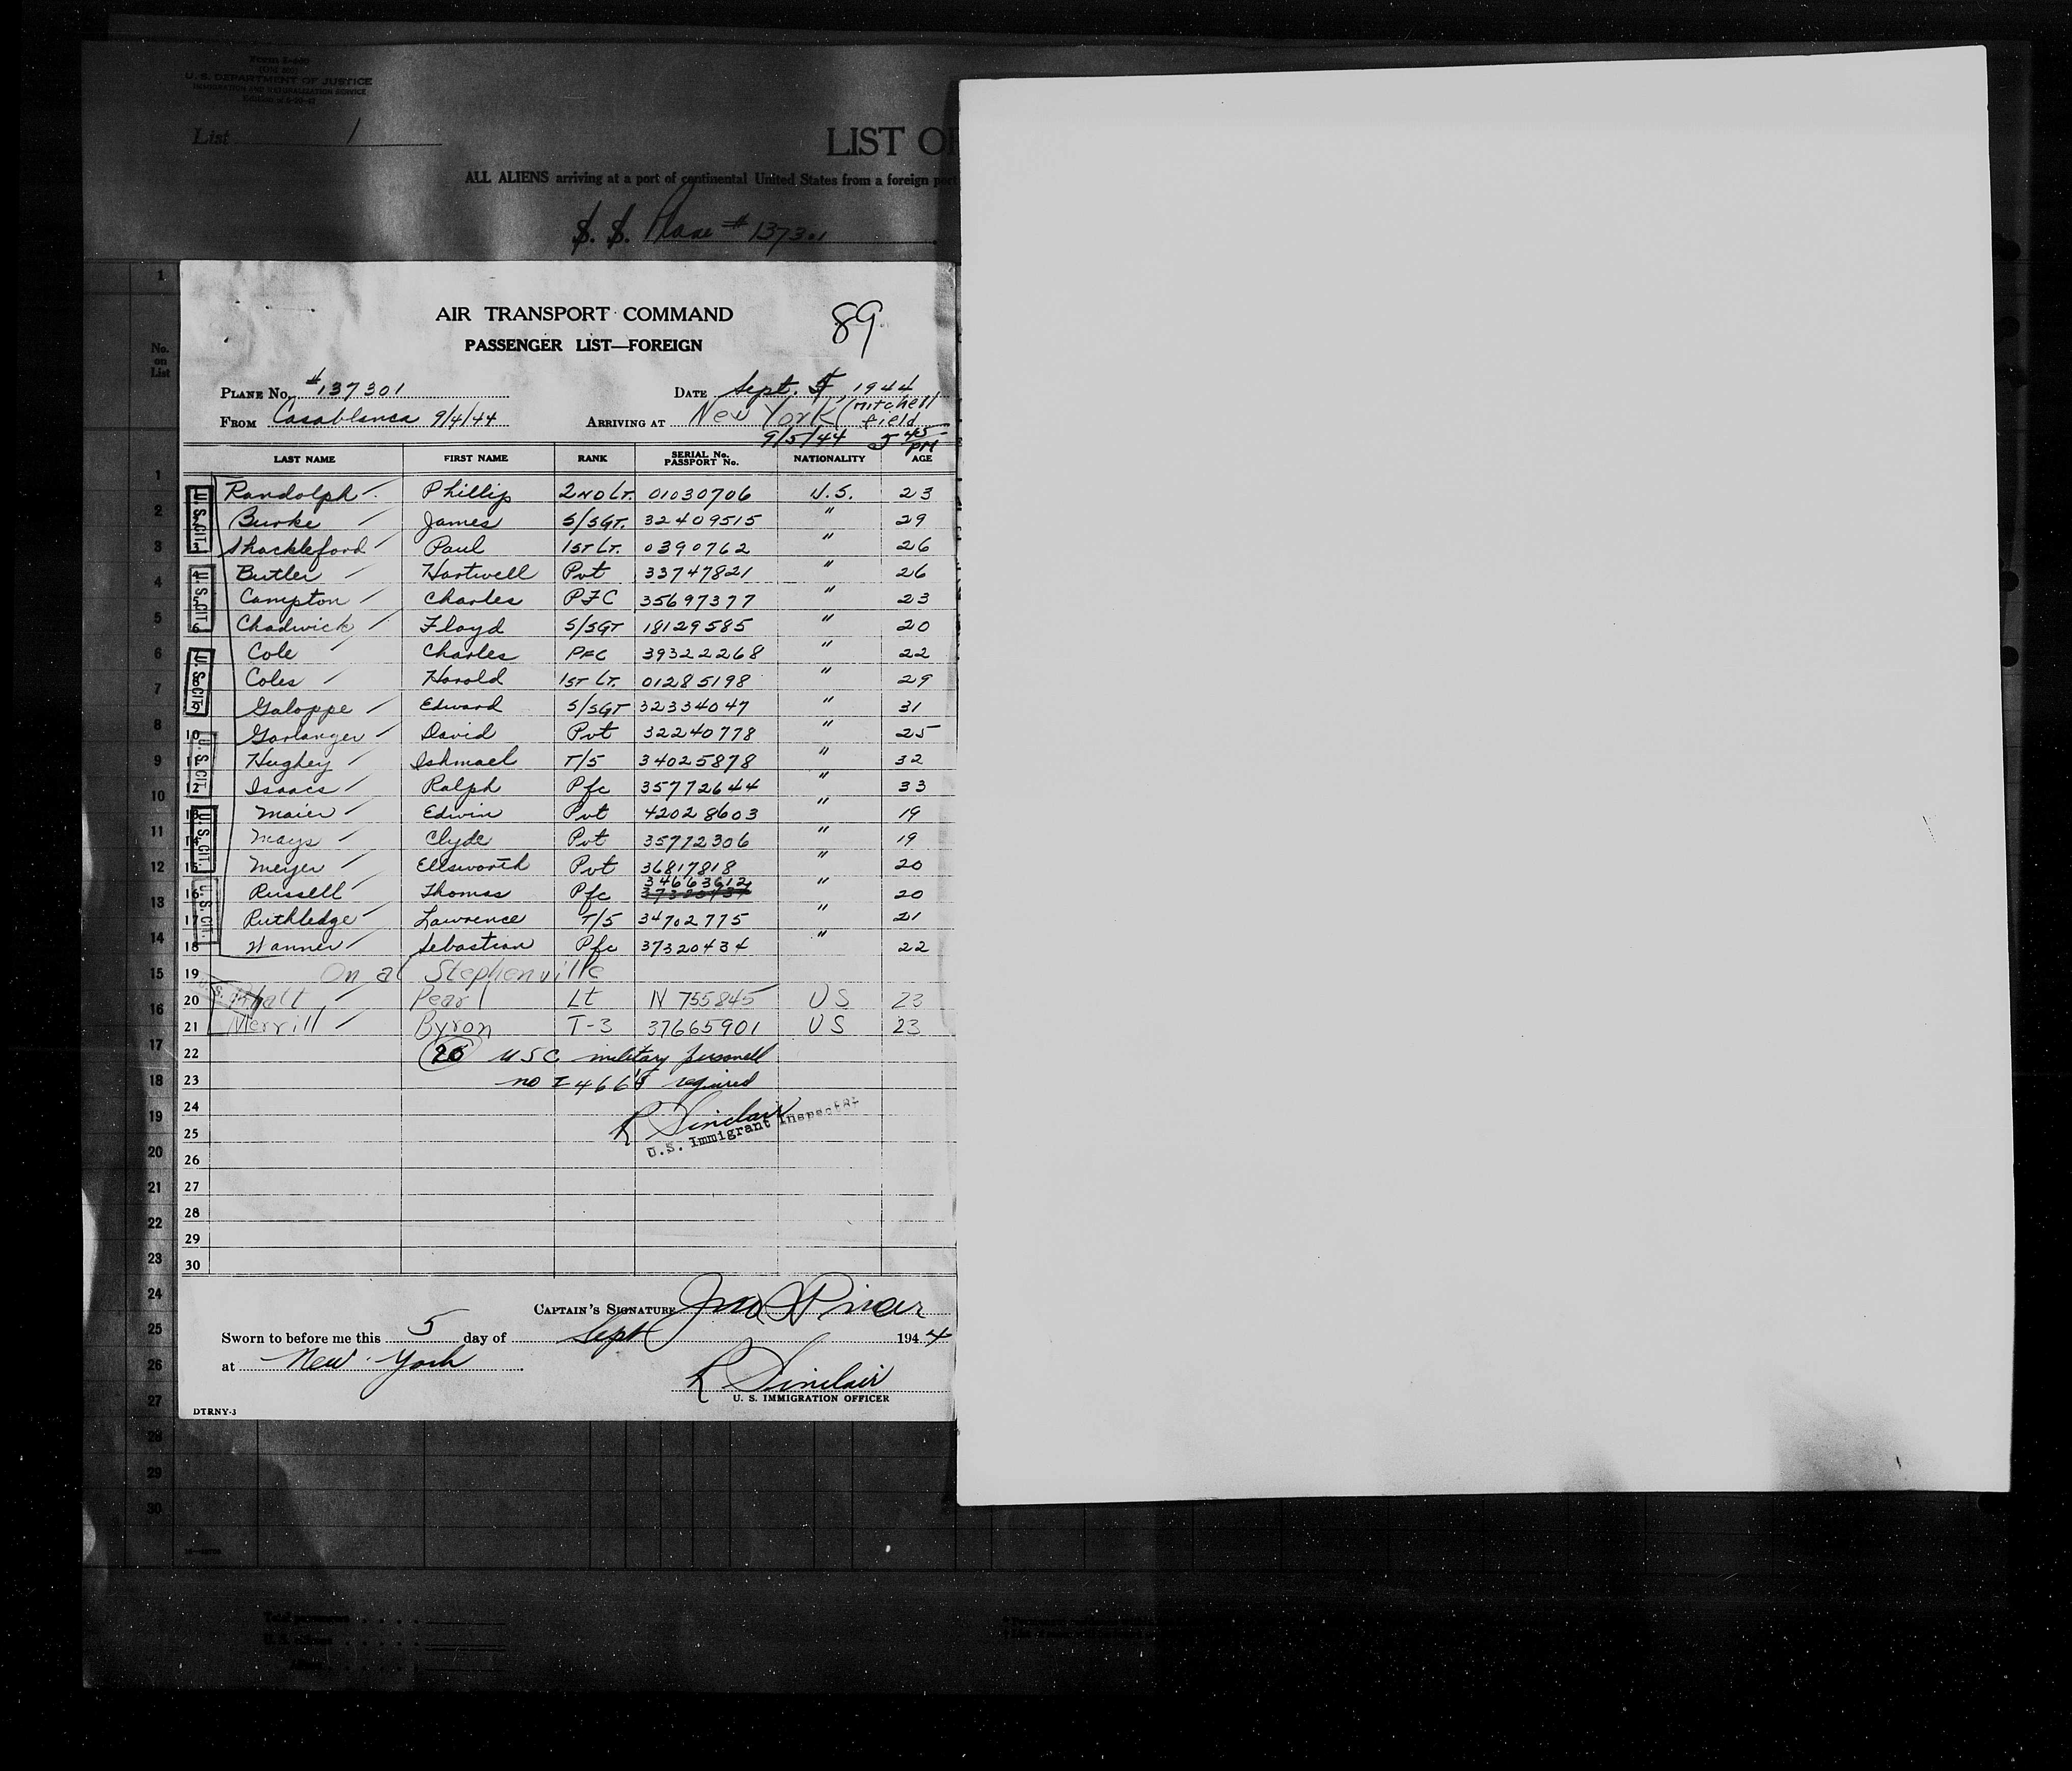 Form I-440
(Old 500)
U. S. DEPARTMENT OF JUSTICE
IMMIGRATION AND NATURALIZATION SERVICE
List 1
LIST OF
ALL ALIENS arriving at a port of continental United States from a foreign port
S. S. Plane # 137301
AIR TRANSPORT COMMAND 89
PASSENGER LIST—FOREIGN
PLANE No. #137301 DATE Sept. 5, 1944
FROM Casablanca 9/4/44 ARRIVING AT New York (Mitchell field
9/5/44 5 45 PM
LAST NAME FIRST NAME RANK SERIAL No. PASSPORT No. NATIONALITY AGE
1 Randolph Phillip 2ND LT. 01030706 U.S. 23
2 Burke James S/SGT. 32409515 " 29
3 Shackleford Paul 1ST LT. 0390762 " 26
4 Butler Hartwell Pvt 33747821 " 26
5 Campton Charles PFC 35697377 " 23
6 Chadwick Floyd S/SGT 18129585 " 20
7 Cole Charles PFC 39322268 " 22
8 Coles Harold 1ST LT. 01285198 " 29
9 Galoppe Edward S/SGT 32334047 " 31
10 Garlanger David Pvt 32240778 " 25
11 Hughey Ishmael T/5 34025878 " 32
12 Isaacs Ralph Pfc 35772644 " 33
13 Maier Edwin Pvt 42028603 " 19
14 Mays Clyde Pvt 35772306 " 19
15 Meyer Ellsworth Pvt 36817818 " 20
16 Russell Thomas Pfc 34663612 37320434 " 20
17 Ruthledge Lawrence T/5 34702775 " 21
18 Wanner Sebastian Pfc 37320434 " 22
19 On at Stephenville
20 Pearl Lt N 755845 US 23
21 Merrill Byron T-3 37665901 US 23
22 20 USC military personell
23 no I 466's required
24 R Sinclair
25 U.S. Immigrant Inspector
26
27
28
29
30
U. S. CIT.
U. S. CIT.
U. S. CIT.
U. S. CIT.
U. S. CIT.
U. S. CIT.
CAPTAIN'S SIGNATURE
Sworn to before me this 5 day of Sept 1944
at New York
R Sinclair
U. S. IMMIGRATION OFFICER
DTRNY-3
No. on List
1
2
3
4
5
6
7
8
9
10
11
12
13
14
15
16
17
18
19
20
21
22
23
24
25
26
27
28
29
30